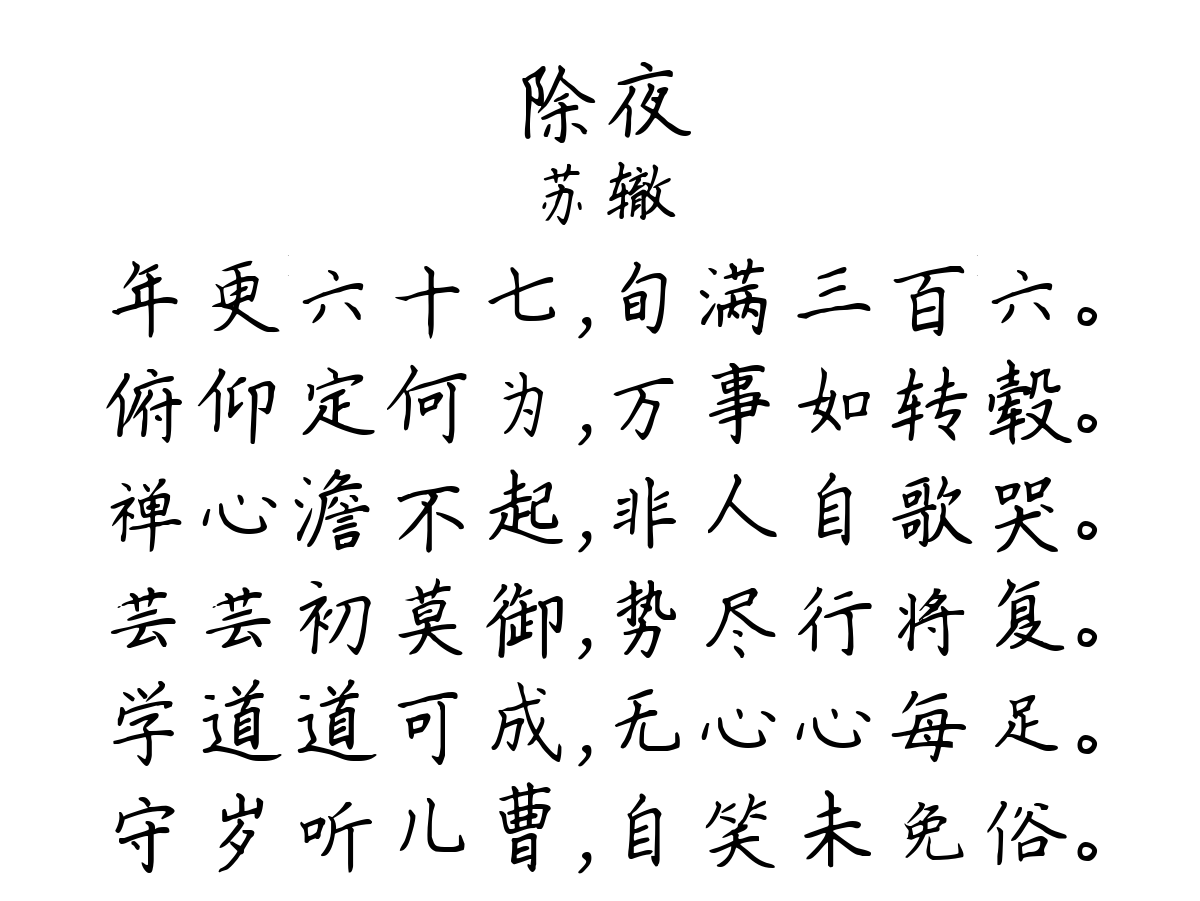 除夜
苏辙
年更六十七,旬满三百六。
俯仰定何为,万事如转毂。
禅心澹不起,非人自歌哭。
芸芸初莫御,势尽行将复。
学道道可成,无心心每足。
守岁听儿曹,自笑未免俗。